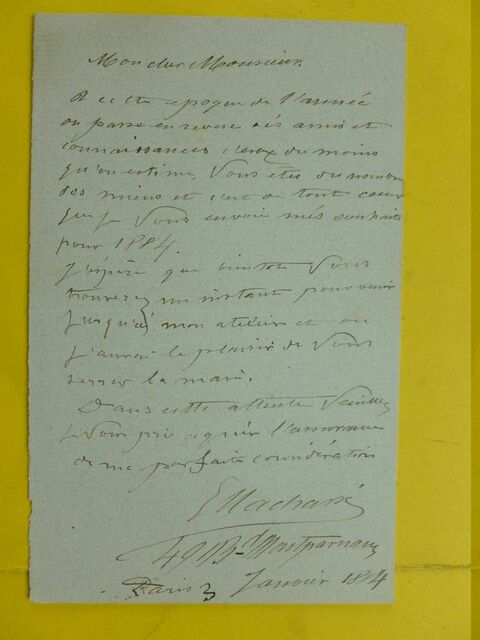 Mon cher Monsieur.
A cette epoque de l'année
on passe en revue ses amis et
connaissances ceux du moins
qu'on estime, Vous etes du nombre
des miens et c'est de tout cœur
que je Vous envoie mes souhaits
pour 1884.
J'éspère que bientot Vous
trouverez un instant pour venir
jusqu'à mon atelier et ou
j'aurai le plaisir de Vous
serrer la main.
Dans cette attente Veuillez
je Vous prie agréer l'assurance
de ma parfaite considération
49 Bd Montparnasse
Paris 3 Janvier 1884